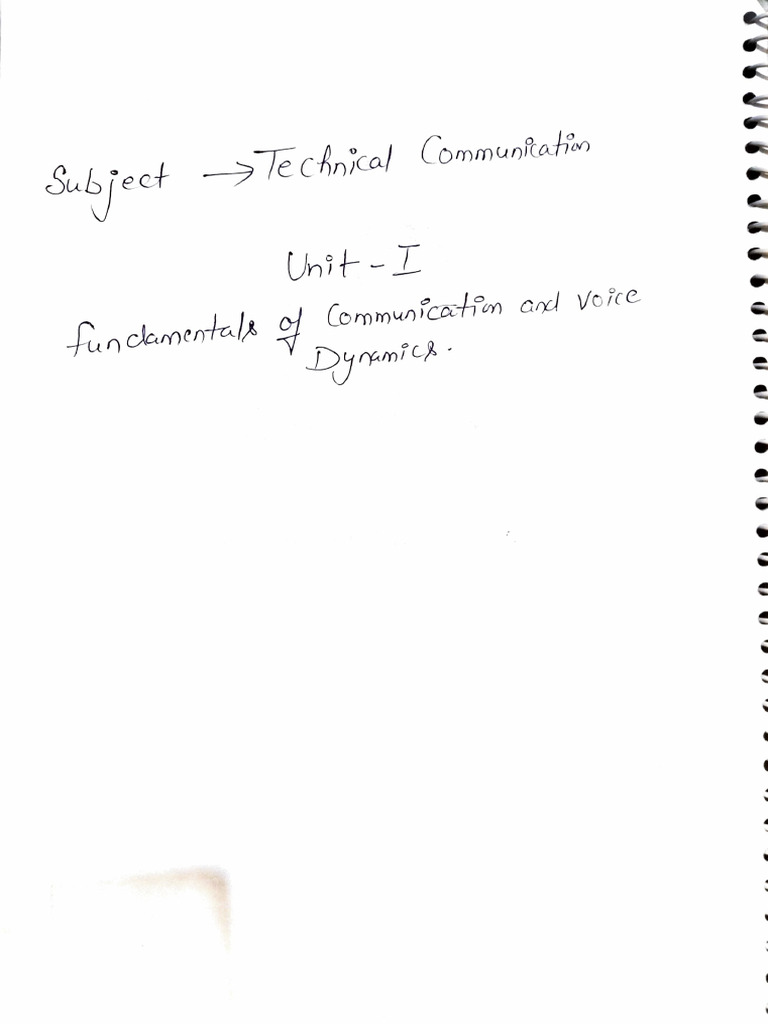 Subject → Technical Communication
Unit - I
fundamentals of Communication and Voice
Dynamics.